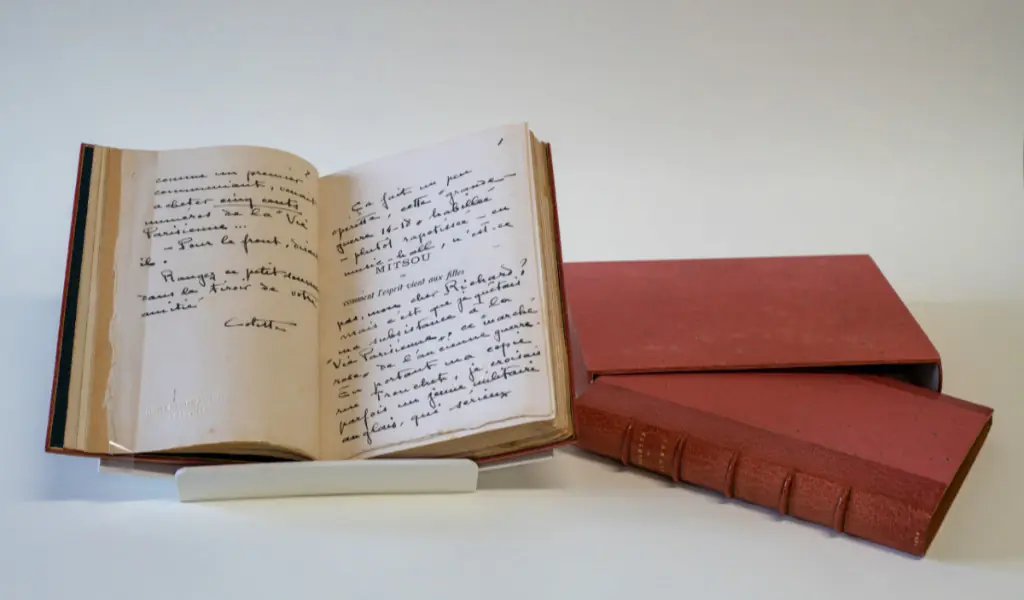 comme un premier
communiant, venait
acheter cinq cents
numéros de la "Vie
Parisienne"...
– Pour le front, disait
il.
Rangez ce petit
dans le tiroir de votre
amitié
Colette
1
Ça fait un peu
opérette, cette "grande
guerre 14-18" habillée
– plutôt rapetissée – en
music-hall, n'est-ce
MITSOU
comment l'esprit vient aux filles
pas, mon cher Richard?
Mais c'est que je quêtais
ma subsistance à la
"Vie Parisienne", ce marché
rose, de l'ancienne guerre.
En portant ma copie
rue Fronchet, je croisais
parfois un jeune militaire
anglais, qui, sérieux